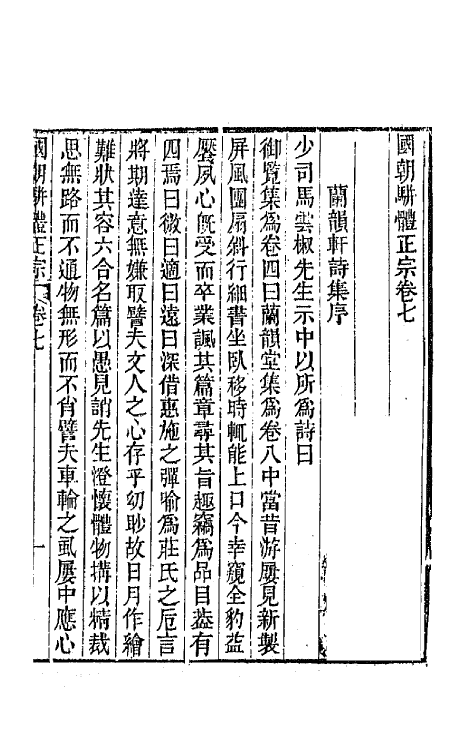 國朝駢體正宗卷七
蘭韻軒詩集序
少司馬雲椒先生示中以所為詩曰
御覧集為卷四曰蘭韻堂集為卷八中當昔游屢見新製
屏風團扇斜行細書坐臥移時輒能上口今幸窺全豹益
饜夙心旣受而卒業諷其篇章尋其旨趣竊為品目葢有
四焉曰微曰適曰遠曰深借惠施之彈喻為莊氏之卮言
將期達意無嫌取譬夫文人之心存乎幼眇故日月作繪
難狀其容六合名篇以愚見誚先生澄懷體物搆以精裁
思無路而不通物無形而不肖譬夫車輪之虱屢中應心
國朝駢體正宗 卷七 一